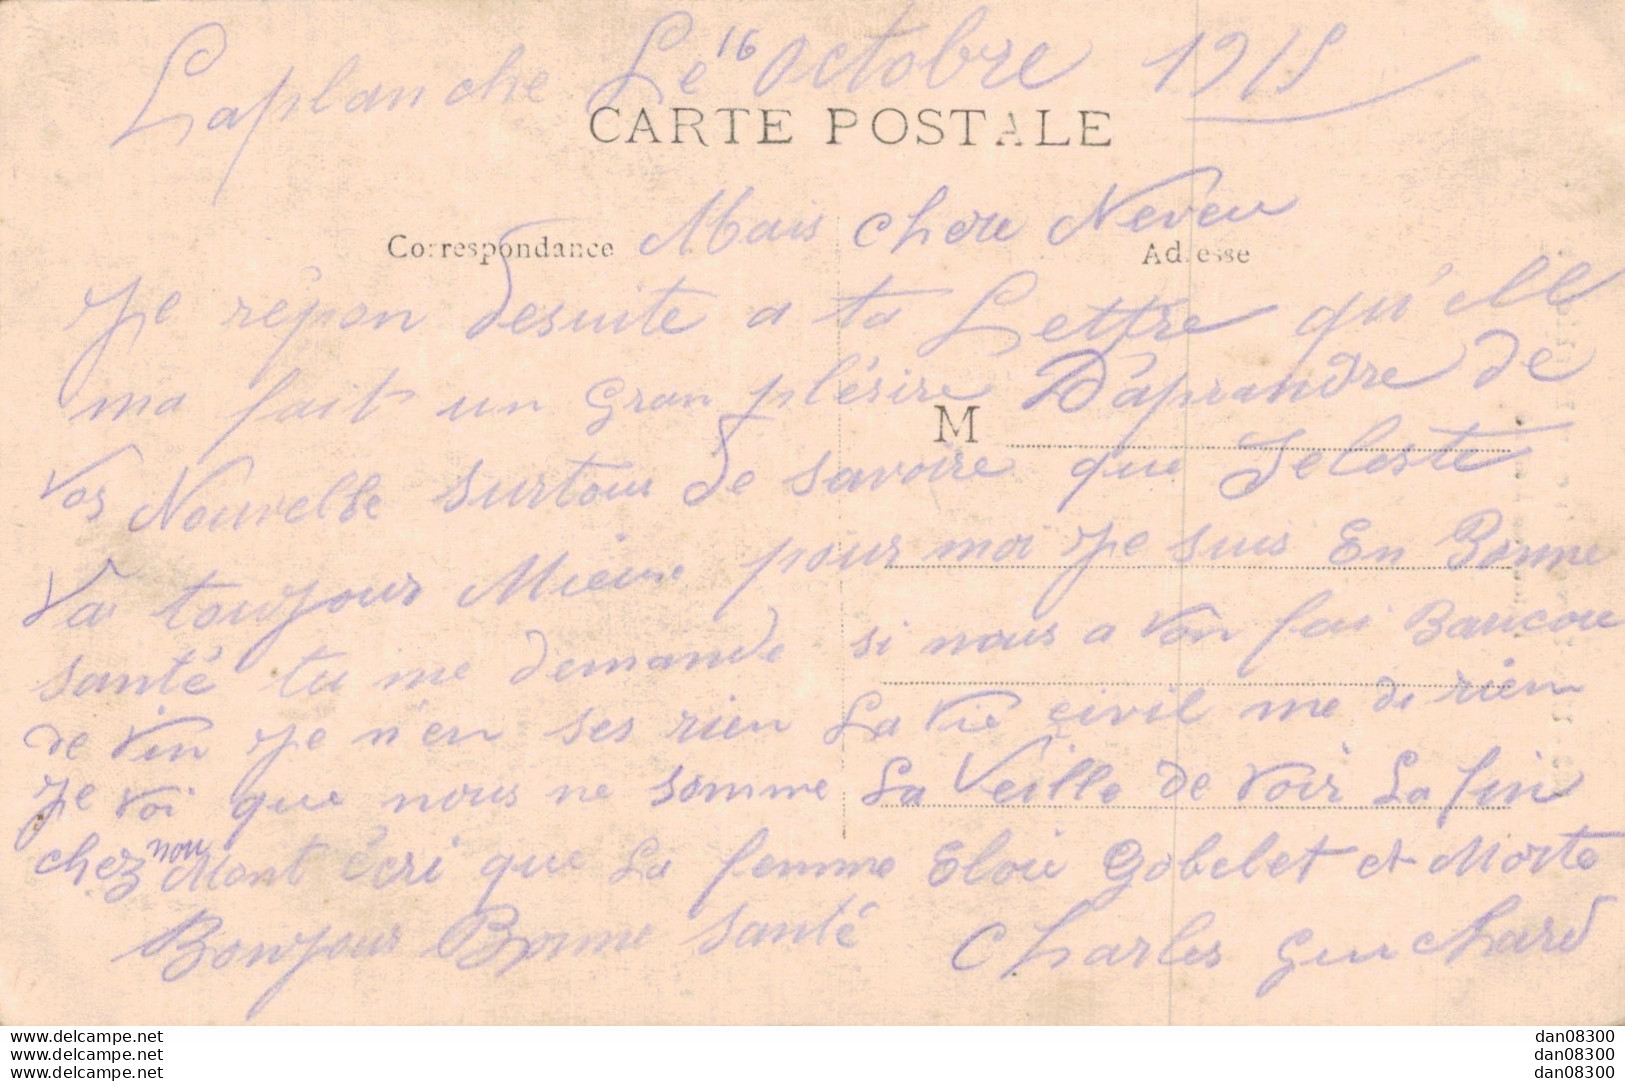 Laplanche Le 16 Octobre 1915
CARTE POSTALE
Mais chere Neveu
Correspondance
Adresse
Je répon desuite a ta Lettre qu'elle
ma fait un Gran plésire D'aprandre de
M
vos Nouvelle surtous de savoire que Seleste
Va toujour Mieux pour moi Je suis En Bonne
santé tu me demande si nous a von fai Baucou
de vin Je n'en ses rien La vie çivil me di rien
Je voi que nous ne somme La Veille de voir La fin
chez nou Mont écri que La femme Eloie Gobelet et Morte
Bonjour Bonne santé Charles Guichard
www.delcampe.net
www.delcampe.net
www.delcampe.net
dan08300
dan08300
dan08300